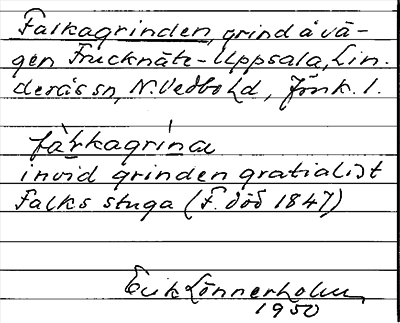 Falkagrinden, grind å vä-
gen Frucknäte-Uppsala, Lin-
derås sn, N. Vedbo hd, Jönk. l.
fàrkagrína
invid grinden gratialist
Falks stuga (F. död 1847)
Erik Lönnerholm
1950